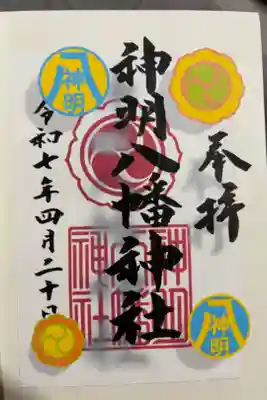 奉拝
神明八幡神社
令和七年四月二十日
八
神明
八
神明